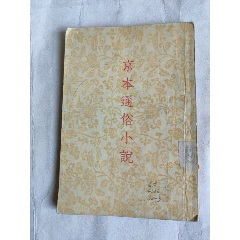 京本通俗小說